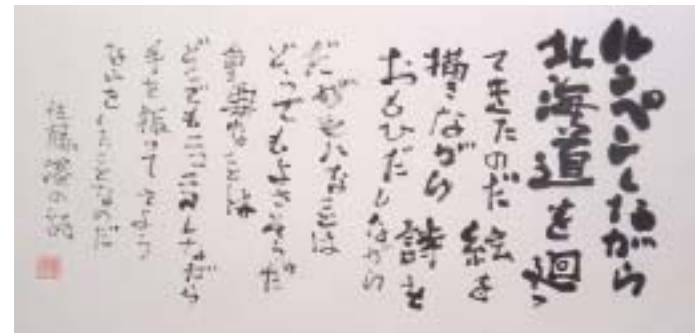 ルンペンしながら
北海道を廻っ
てきたのだ 絵を
描きながら 詩を
おもひだしながら
だがそんなことは
どうでもよささうだ
重要なことは
どこでもニコニコしながら
手を振ってさよう
ならをしたことなのだ
佐藤溪の詩